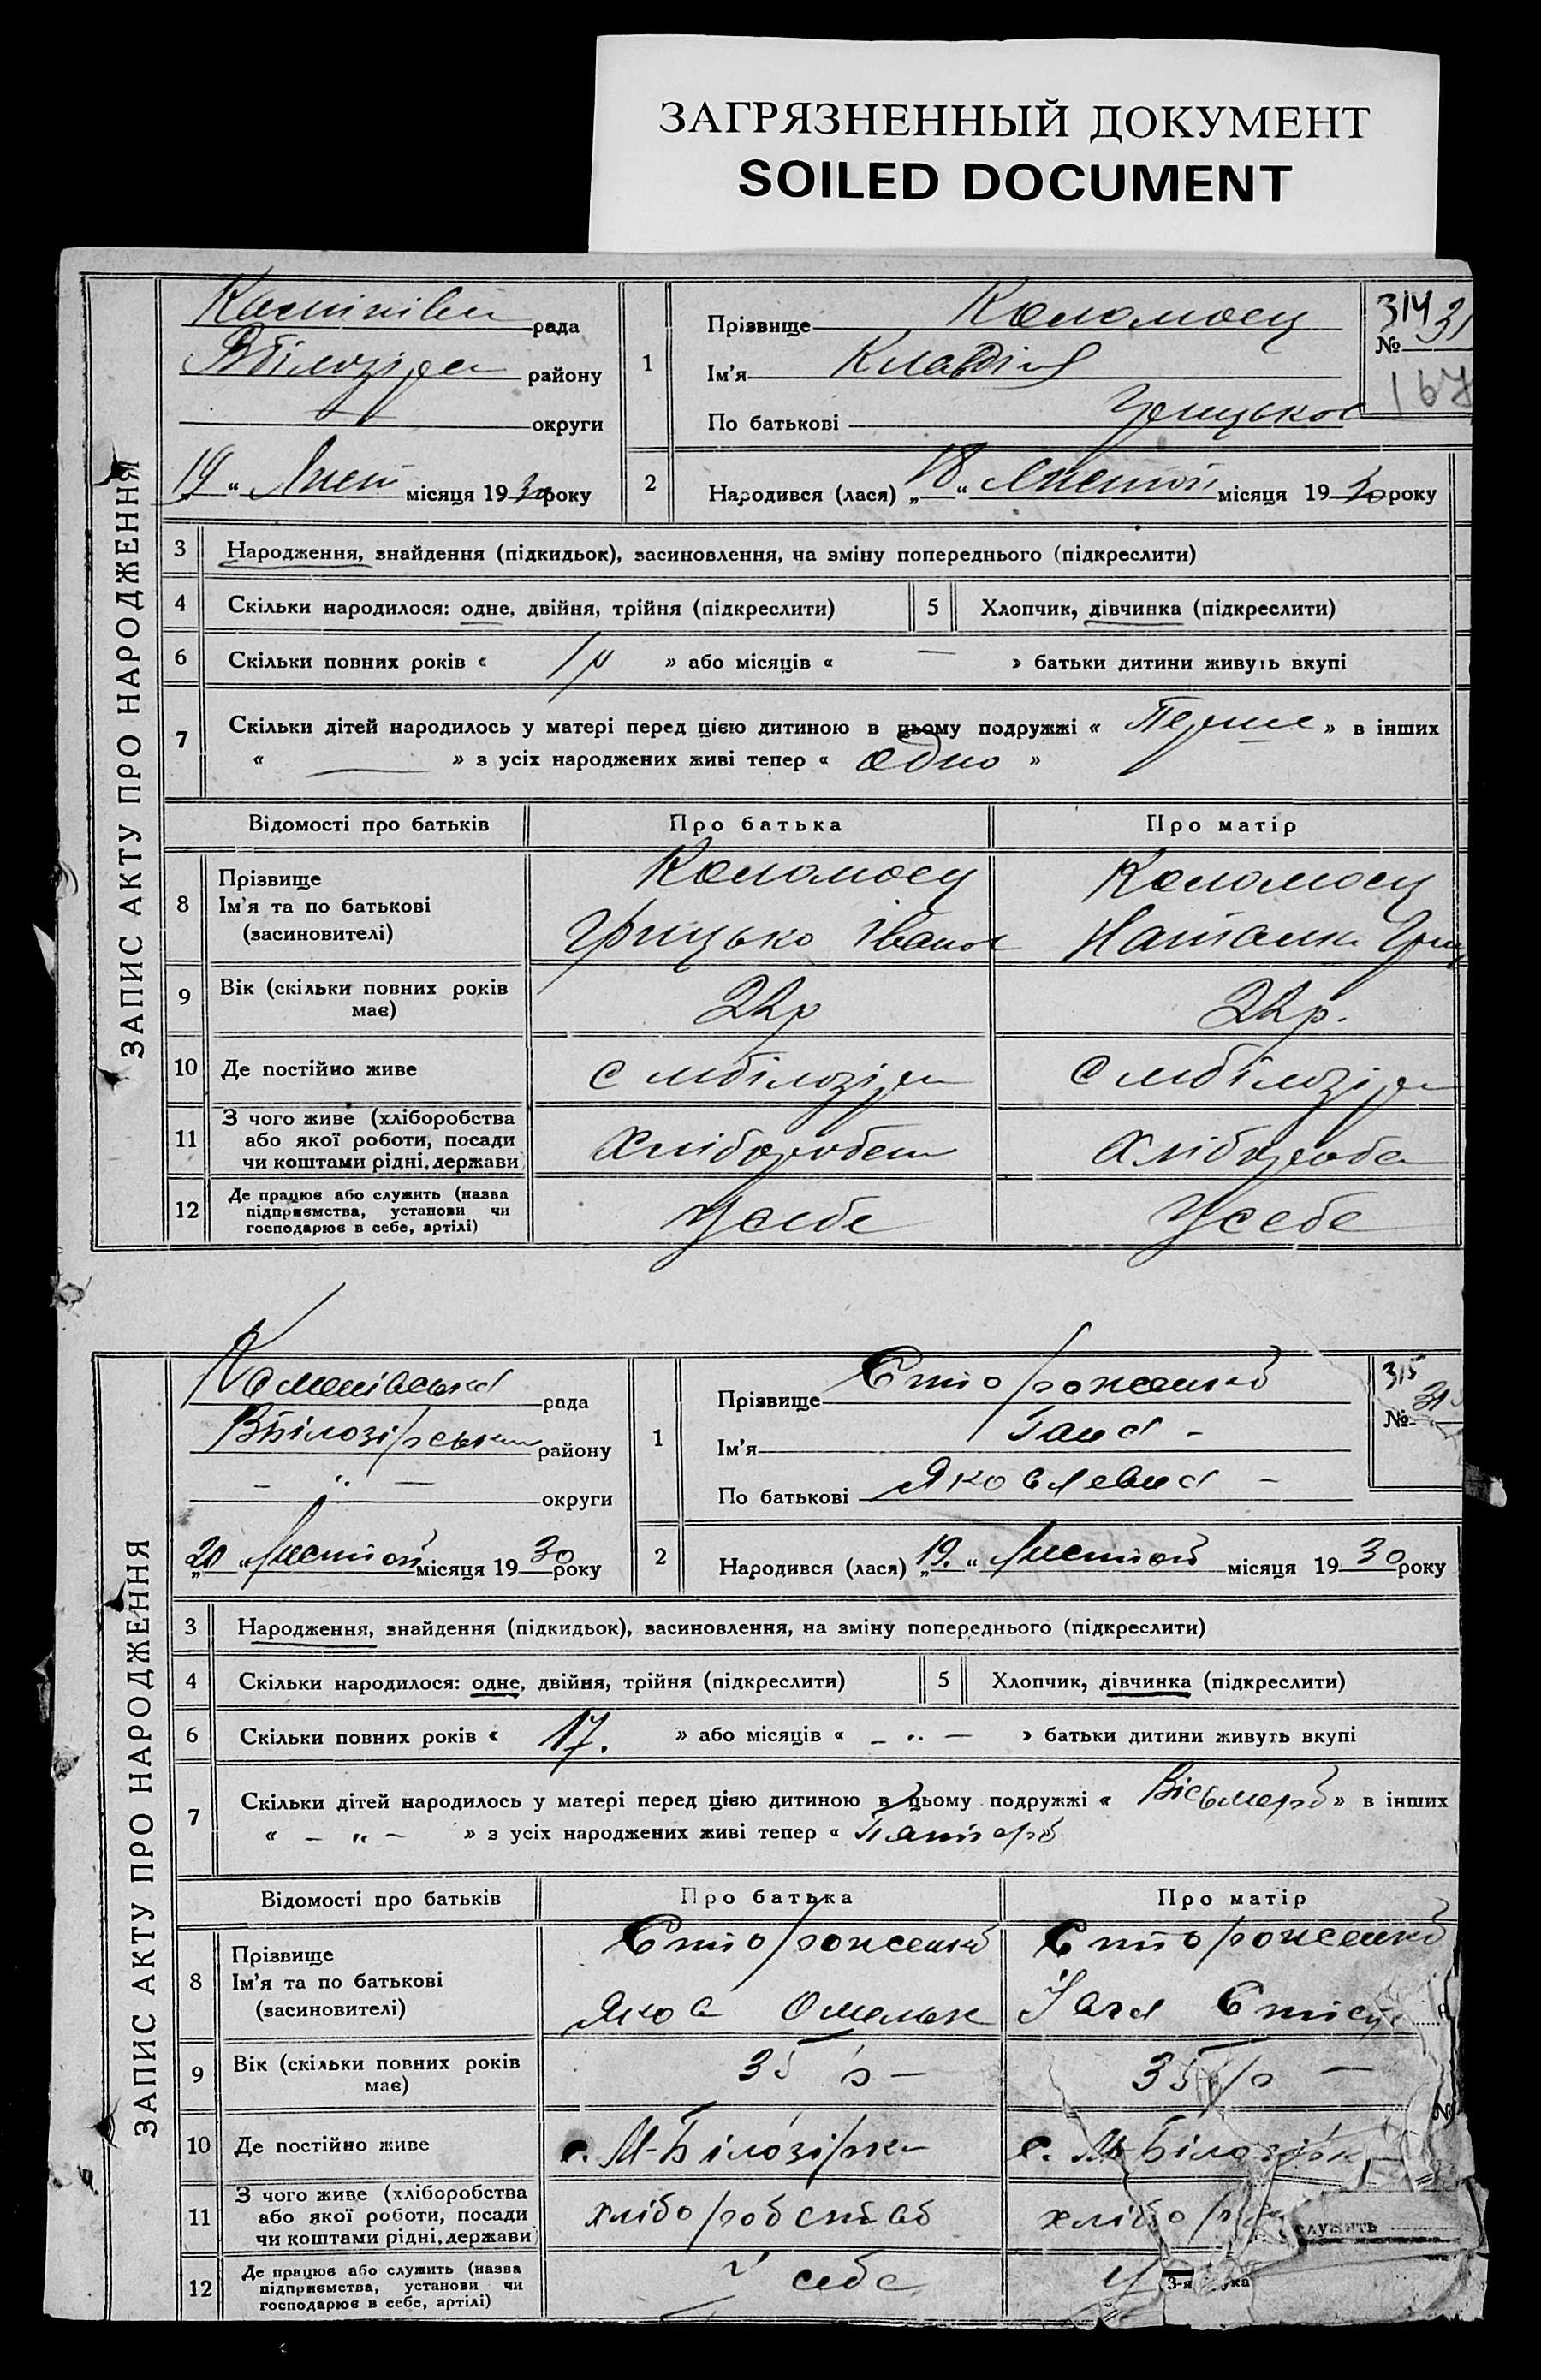 ЗАГРЯЗНЕННЫЙ ДОКУМЕНТ
SOILED DOCUMENT
ЗАПИС АКТУ ПРО НАРОДЖЕННЯ
рада
району
округи
19 " місяця 1930 року
1
Прізвище Коломоец
Ім'я Клавдія
По батькові Грицьков
314
31
№
167
2
Народився (лася) „18" місяця 1930 року
3 Народження, знайдення (підкидьок), засиновлення, на зміну попереднього (підкреслити)
4 Скільки народилося: одне, двійня, трійня (підкреслити) 5 Хлопчик, дівчинка (підкреслити)
6 Скільки повних років « 1р » або місяців « — » батьки дитини живуть вкупі
7 Скільки дітей народилось у матері перед цією дитиною в цьому подружжі « Перше » в інших
« — » з усіх народжених живі тепер « одно »
Відомості про батьків Про батька Про матір
8 Прізвище Коломоец Коломоец
Ім'я та по батькові
(засиновителі) Грицько Іванов Наталка Гриц
9 Вік (скільки повних років
має) 22р 22р.
10 Де постійно живе с мбілозірка с мбілозірка
11 З чого живе (хліборобства
або якої роботи, посади
чи коштами рідні, держави)
12 Де працює або служить (назва
підприємства, установи чи
господарює в себе, артілі) У себе У себе
ЗАПИС АКТУ ПРО НАРОДЖЕННЯ
рада
ВБілозірськ району
– " – округи
„20 " Листоп місяця 1930 року
1
Прізвище Стороженко
Ім'я Ганя –
По батькові Яковлевна –
315
№
2
Народився (лася) „19." Листоп місяця 1930 року
3 Народження, знайдення (підкидьок), засиновлення, на зміну попереднього (підкреслити)
4 Скільки народилося: одне, двійня, трійня (підкреслити) 5 Хлопчик, дівчинка (підкреслити)
6 Скільки повних років « 17. » або місяців « – " – » батьки дитини живуть вкупі
7 Скільки дітей народилось у матері перед цією дитиною в цьому подружжі « Вісьмеро » в інших
« – " – » з усіх народжених живі тепер « Пятеро
Відомості про батьків Про батька Про матір
8 Прізвище Стороженко Стороженко
Ім'я та по батькові
(засиновителі) Яков Омельк
9 Вік (скільки повних років
має) 35 р – 35 р –
10 Де постійно живе с. М-Білозірка с. М-Білозірк
11 З чого живе (хліборобства
або якої роботи, посади
чи коштами рідні, держави) хліборобство хлібор
служить
12 Де працює або служить (назва
підприємства, установи чи
господарює в себе, артілі) у себе у
3-я